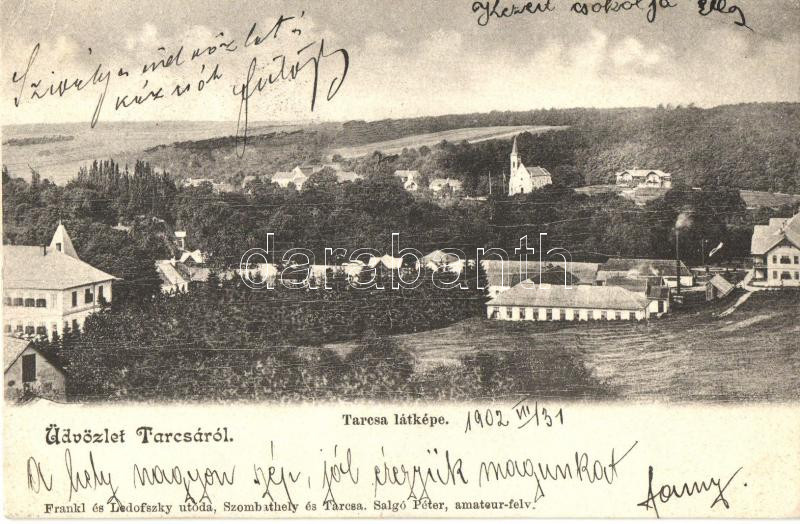 Kezeit csokolja
Szívélyes üdvözlet
kézcsók
darabanth
Tarcsa látképe. 1902 VII/31
Üdvözlet Tarcsáról.
A hely nagyon szép, jól érezzük magunkat
Fanny.
Frankl és Ledofszky utóda, Szombathely és Tarcsa. Salgó Péter, amateur-felv.